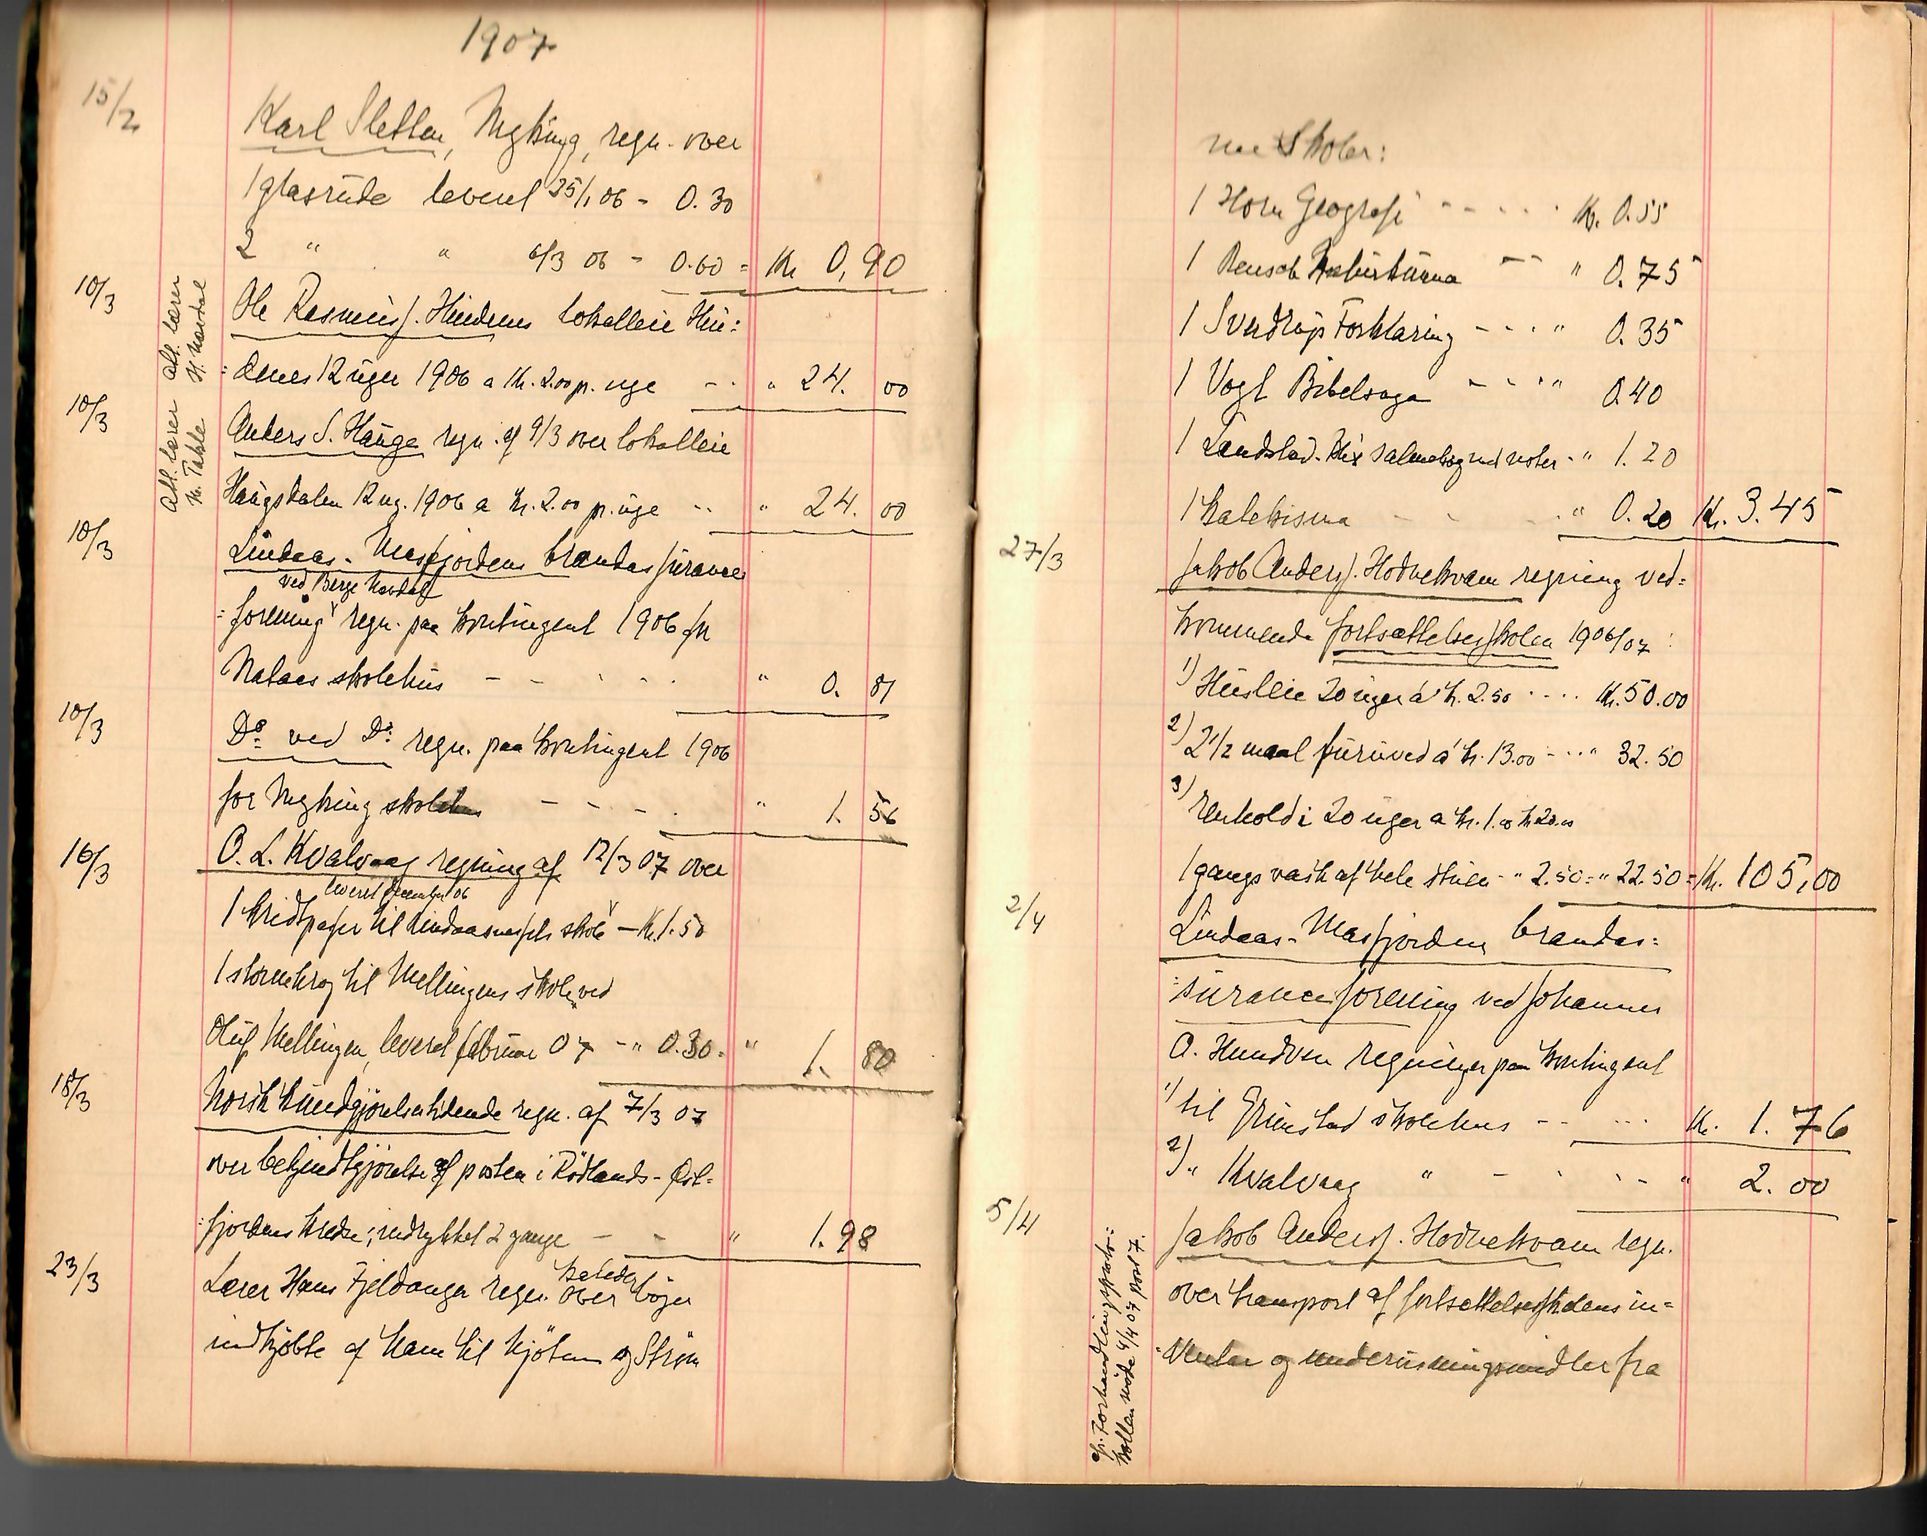 1907
15/2
Karl Sletten, Mykingg, regn. over
1 glasrude leveret 25/1 06 - 0.30
2 " " 6/3 06 - 0.60 = Kr 0,90
10/3
Att. lærer
H. Nordal
Ole Rasmuss. Hindenes lokalleie Hin:
:denes 12 uger 1906 a Kr. 2.00 p. uge - - " 24. 00
10/3
Att. lærer
M. Takle
Anders S. Hauge regn. af 9/3 over lokalleie
Haugsdalen 12 ug. 1906 a kr. 2.00 p. uge - - " 24. 00
10/3
Lindaas-Masfjordens brandassurance
ved Berge Nordal
:forening regn. paa kontingent 1906 for
Nataas skolehus - - - - - " 0. 81
10/3
Do ved Do regn. paa kontingent 1906
for Myking skolehus - - - - " 1. 56
16/3
O. L. Kvalvaag regning af 12/3 07 over
leveret december 06
1 kridtpasser til Lindaasnesets skole - Kr. 1.50
1 stormkrog til Mellingens skole, ved
Oluf Mellingen, leveret februar 07 - " 0.30 = " 1. 80
18/3
Norsk kundgjørelsestidende regn. af 7/3 07
over bekjendtgjørelse af posten i Rödlands-Öst-
:fjordens kreds; indrykket 2 gange - - " 1.98
23/3
Lærer Hans Fjeldanger regn. over bøger
indkjøbte af ham til Kjötnes og Ström
nes Skoler:
1 Horn Geografi - - - - Kr. 0.55
1 Rensch Naturkunna - - " 0.75
1 Sverdrups Forklaring - - - " 0.35
1 Vogt Bibelsoga - - - " 0.40
1 Landstad. Rev. Salmebog med noter - " 1.20
1 Katekisma - - - " 0.20 Kr. 3.45
27/3
Jakob Anderss. Hodnekvam regning ved=
kommende fortsættelsesskolen 1906/07:
1) Husleie 20 uger á kr. 2.50 - - - - Kr. 50.00
2) 2 1/2 maal furuved á kr. 13.00 - - - " 32.50
3) Renhold i 20 uger a kr. 1.00 kr 20.00
1 gangs vask af hele stuen - " 2.50 = " 22.50 = Kr. 105,00
2/4
Lindaas-Masfjordens brandas=
:suranceforening ved Johannes
O. Hundven regninger paa kontingent
1) til Grimstad skolehus - - - - - Kr. 1.76
2) " Kvalvaag " - - - - " 2.00
5/4
cfr. Forhandlingsproto=
kollen møde 4/4 07 post 7.
Jakob Anderss. Hodnekvam regn.
over transport af fortsættelsesskolens in=
ventar og undervisningsmidler fra